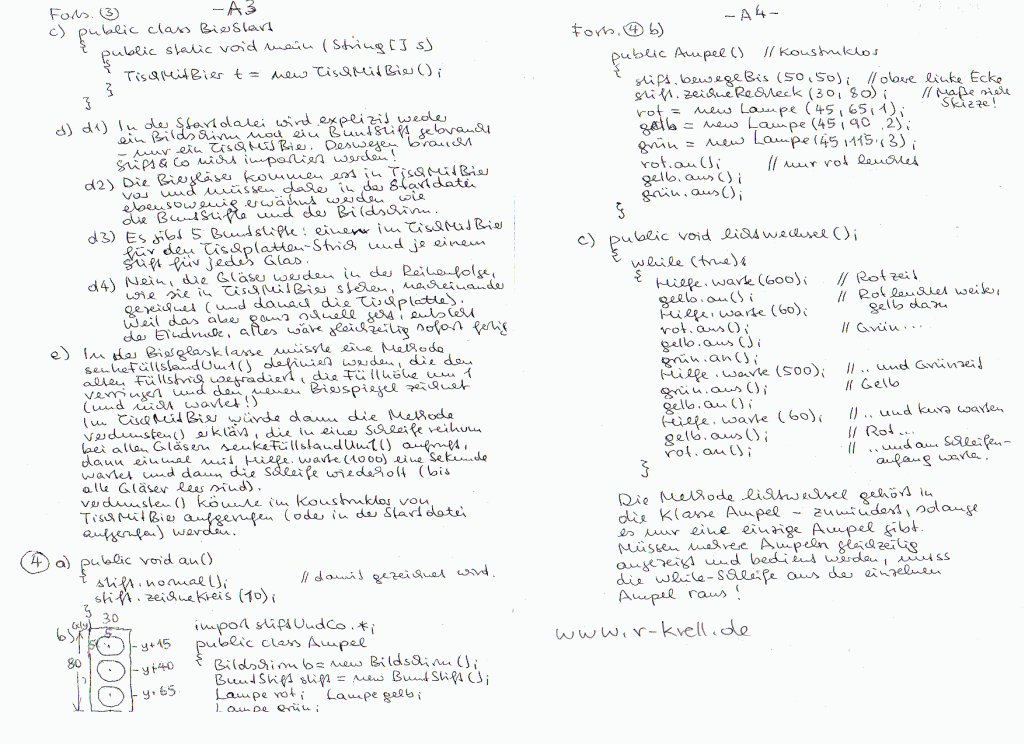 Forts. ③ -A3
c) public class BierStart
{ public static void main (String [] s)
{
TischMitBier t = new TischMitBier();
}
}
d) d1) In der Startdatei wird explizit weder
ein Bildschirm noch ein BuntStift gebraucht
- nur ein TischMitBier. Deswegen braucht
Stift&Co nicht importiert werden!
d2) Die Biergläser kommen erst in TischMitBier
vor und müssen daher in der Startdatei
ebensowenig erwähnt werden wie
die BuntStifte und der Bildschirm.
d3) Es gibt 5 Buntstifte: einen im TischMitBier
für den Tischplatten-Strich und je einem
Stift für jedes Glas.
d4) Nein, die Gläser werden in der Reihenfolge,
wie sie in TischMitBier stehen, nacheinander
gezeichnet (und danach die Tischplatte).
Weil das aber ganz schnell geht, entsteht
der Eindruck, alles wäre gleichzeitig sofort fertig
e) In der Bierglasklasse müsste eine Methode
senkeFüllstandUm1() definiert werden, die den
alten Füllstrich wegradiert, die Füllhöhe um 1
verringert und den neuen Bierspiegel zeichnet
(und nicht wartet!)
Im TischMitBier würde dann die Methode
verdunsten() erklärt, die in einer Schleife reihum
bei allen Gläsern senkeFüllstandUm1() aufruft,
dann einmal mit Hilfe.warte(1000) eine Sekunde
wartet und dann die Schleife wiederholt (bis
alle Gläser leer sind).
verdunsten() könnte im Konstruktor von
TischMitBier aufgerufen (oder in der Startdatei
aufgerufen) werden.
④ a) public void an()
{
stift.normal(); // damit gezeichnet wird.
stift.zeichneKreis (10);
}
b) (x|y) 30
80
5
5
y+15
y+40
y+65
import stiftUndCo.*;
public class Ampel
{ Bildschirm b = new Bildschirm();
BuntStift stift = new BuntStift();
Lampe rot; Lampe gelb;
Lampe grün;
-A4-
Forts. ④ b)
public Ampel() // Konstruktor
{ stift.bewegeBis (50,50); // obere linke Ecke
stift.zeichneRechteck (30, 80); // Maße siehe
Skizze!
rot = new Lampe (45, 65, 1);
gelb = new Lampe (45, 90, 2);
grün = new Lampe (45, 115, 3);
rot.an(); // nur rot leuchtet
gelb.aus();
grün.aus();
}
c) public void lichtwechsel();
{
while (true)
{ Hilfe.warte (600); // Rotzeit
gelb.an(); // Rot leuchtet weiter,
gelb dazu
Hilfe.warte (60);
rot.aus(); // Grün ....
gelb.aus();
grün.an();
Hilfe.warte (500); // .. und Grünzeit
grün.aus(); // Gelb
gelb.an();
Hilfe.warte (60); // .. und kurz warten
gelb.aus(); // Rot...
rot.an(); // .. und am Schleifen-
anfang warten.
}
Die Methode lichtwechsel gehört in
die Klasse Ampel - zumindest, solange
es nur eine einzige Ampel gibt.
Müssen mehrere Ampeln gleichzeitig
angezeigt und bedient werden, muss
die while-Schleife aus der einzelnen
Ampel raus!
www.r-krell.de